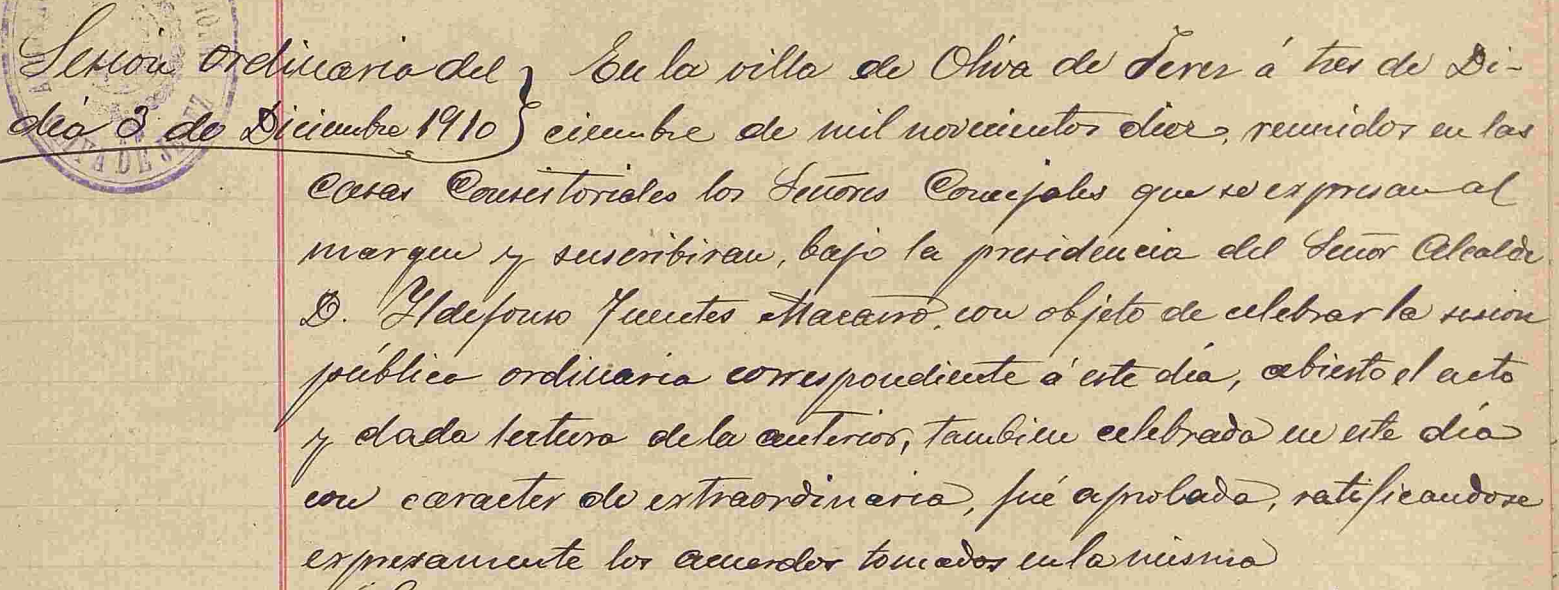 Sesion ordinaria del
dia 3 de Diciembre 1910
En la villa de Oliva de Jerez á tres de Di-
ciembre de mil novecientos diez, reunidos en las
Casas Consistoriales los Señores Concejales que se expresan al
margen y suscribiran, bajo la presidencia del Señor Alcalde
D. Yldefonso Fuentes Macarro, con objeto de celebrar la sesion
pública ordinaria correspondiente á este día, abierto el acto
y dada lectura de la anterior, tambien celebrada en este día
con caracter de extraordinaria, fué aprobada, ratificandose
expresamente los acuerdos tomados en la misma